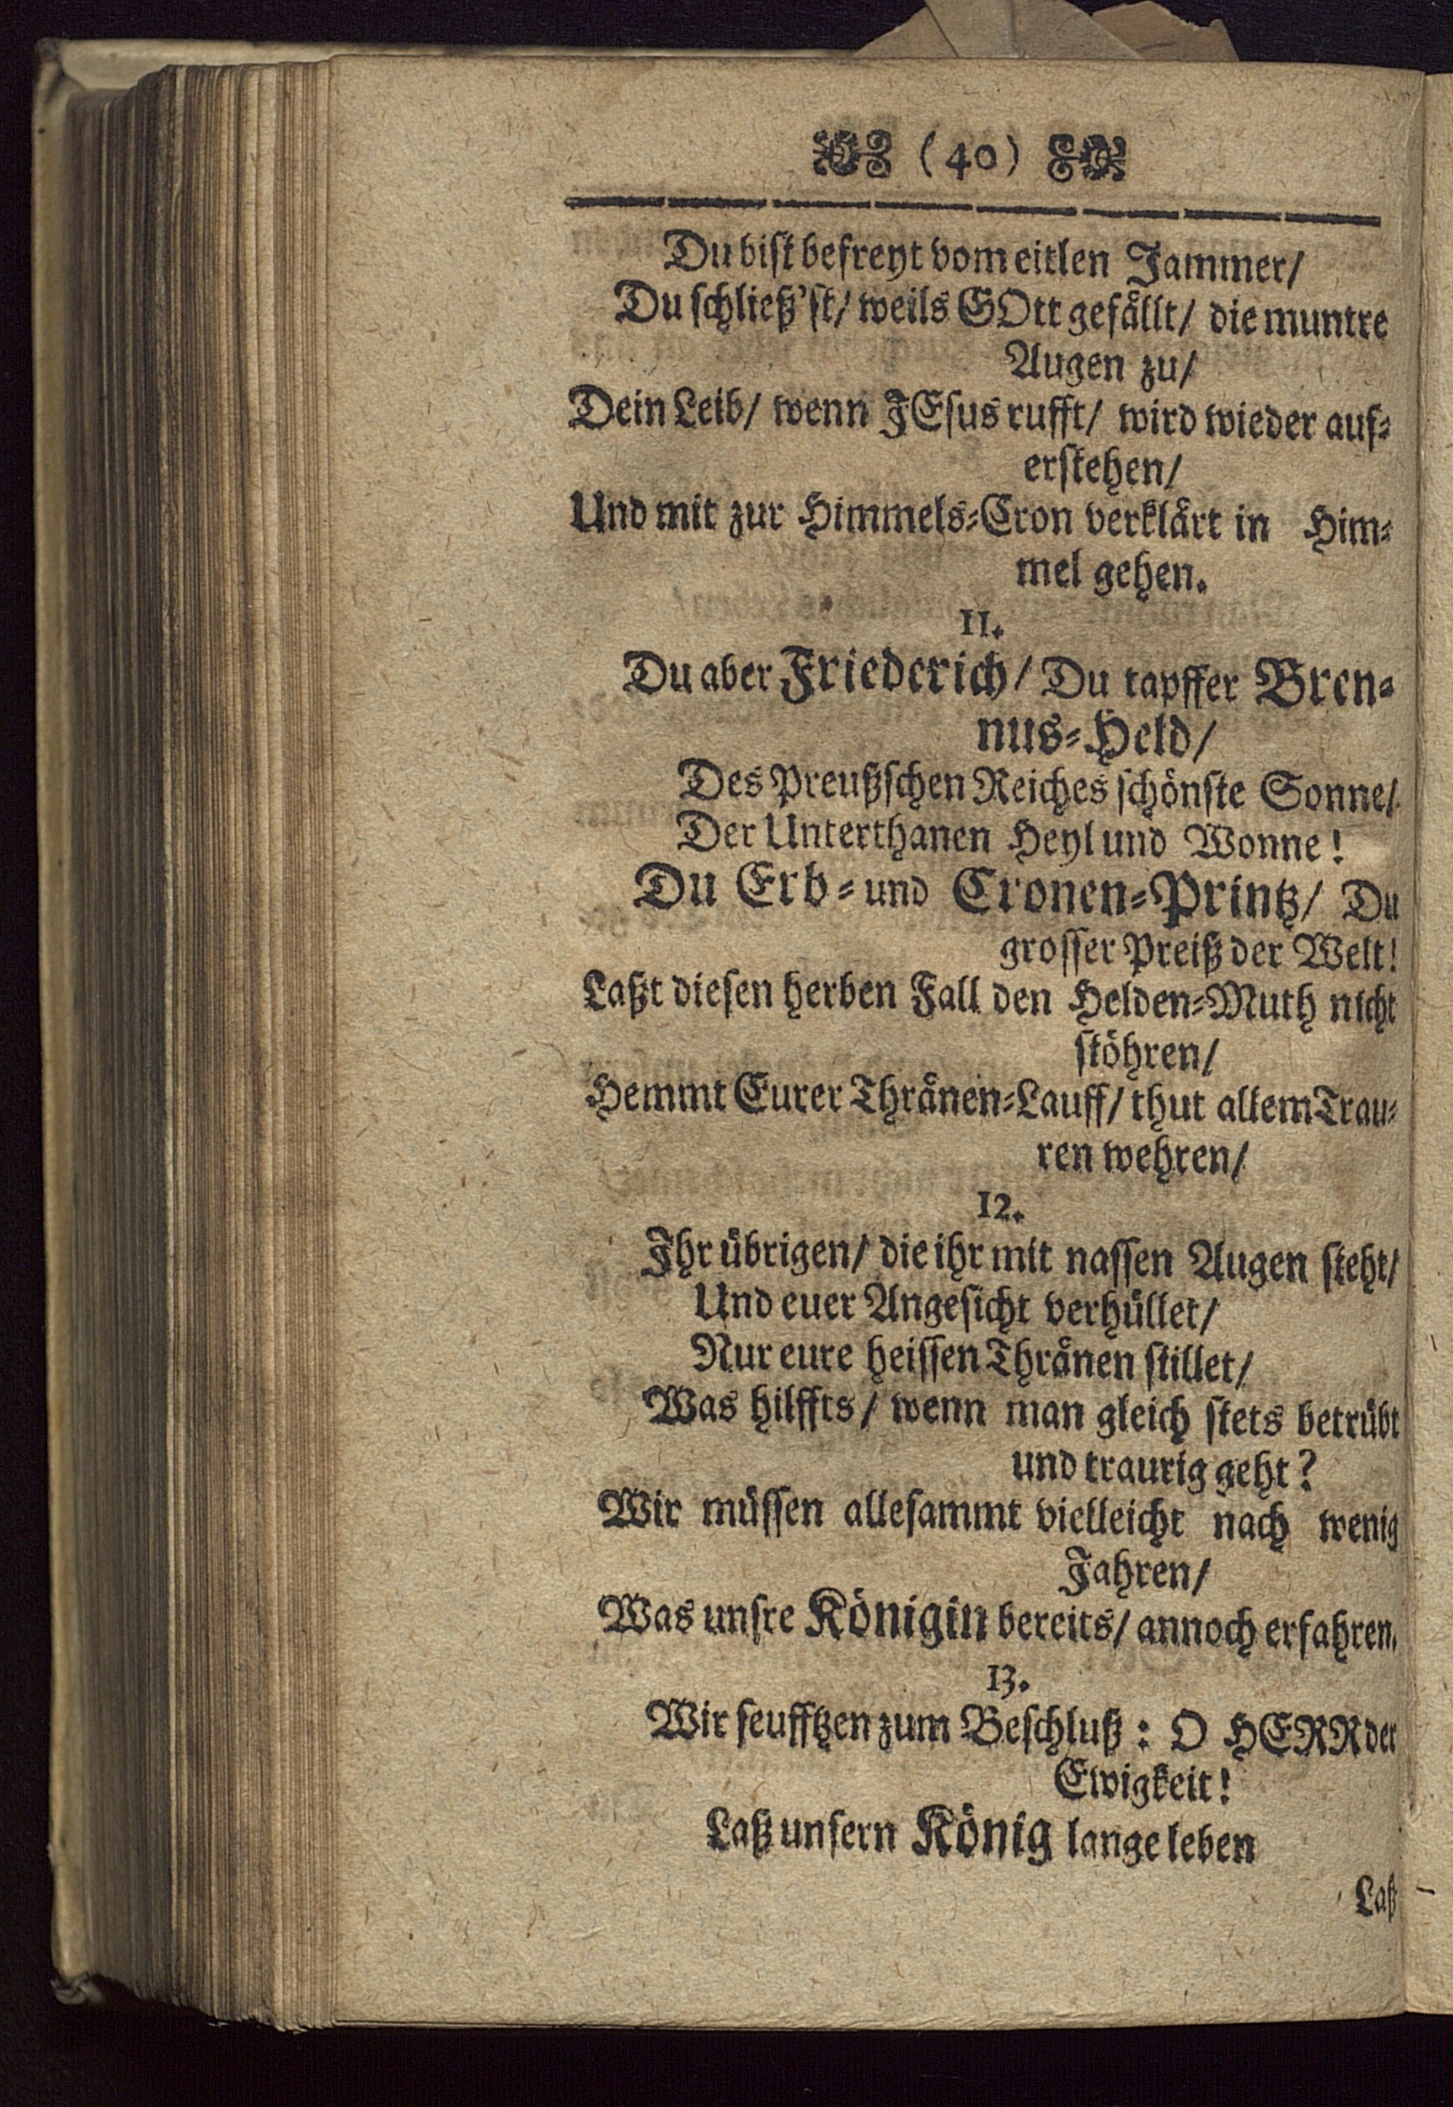 (40)
Du bist befreyt vom eitlen Jammer/
Du schließ'st/ weils GOtt gefällt/ die muntre
Augen zu/
Dein Leib/ wenn JEsus rufft/ wird wieder auf-
erstehen/
Und mit zur Himmels-Cron verklärt in Him-
mel gehen.
11.
Du aber Friederich/ Du tapffer Bren-
nus-Held/
Des Preußschen Reiches schönste Sonne/
Der Unterthanen Heyl und Wonne!
Du Erb- und Cronen-Printz/ Du
grosser Preiß der Welt!
Laßt diesen herben Fall den Helden-Muth nicht
stöhren/
Hemmt Eurer Thränen-Lauff/ thut allem Trau-
ren wehren/
12.
Ihr übrigen/ die ihr mit nassen Augen steht/
Und euer Angesicht verhüllet/
Nur eure heissen Thränen stillet/
Was hilffts/ wenn man gleich stets betrübt
und traurig geht?
Wir müssen allesammt vielleicht nach wenig
Jahren/
Was unsre Königin bereits/ annoch erfahren.
13.
Wir seufftzen zum Beschluß: O HERR der
Ewigkeit!
Laß unsern König lange leben
Laß